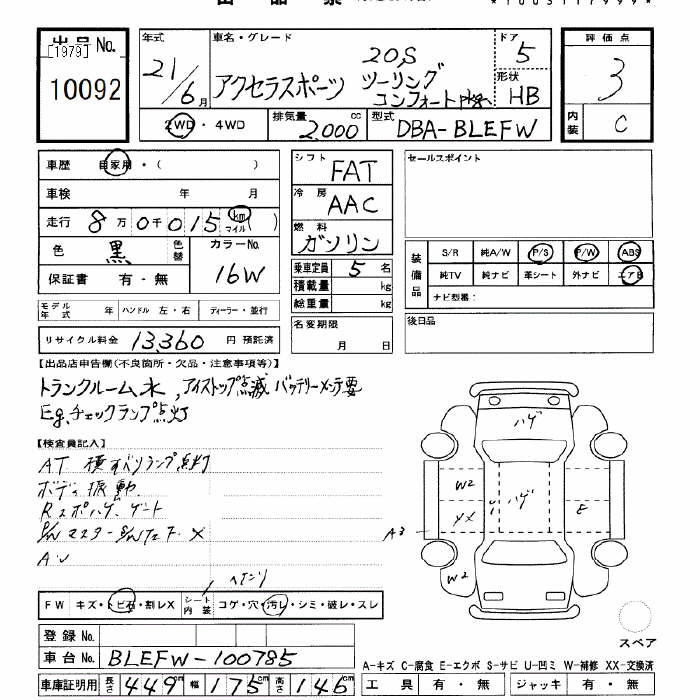 出品票
*1003117999*
出品No. 年式 車名・グレード ドア 評価点
[1979]
10092 21/6月 アクセラスポーツ 20S ツーリング コンフォートpkg 5 3
形状 HB
内装 C
2WD・4WD 排気量 2,000 cc 型式 DBA-BLEFW
車歴 自家用・( )
車検 年 月
走行 8万0千015 km マイル ( )
色 黒 色替 カラーNo. 16W
保証書 有・無
シフト FAT
冷房 AAC
燃料 ガソリン
乗車定員 5 名
積載量 kg
総重量 kg
セールスポイント
装備品 S/R 純A/W P/S P/W ABS
純TV 純ナビ 革シート 外ナビ エアB
ナビ型番:
モデル年式 年 ハンドル 左・右 ディーラー・並行
リサイクル料金 13,360 円 預託済
名変期限 月 日
後日品
【出品店申告欄(不良箇所・欠品・注意事項等)】
トランクルーム水、アイストップ点滅 バッテリーメンテ要
Eg.チェックランプ点灯
【検査員記入】
AT 横すべりランプ点灯
ボデー振動
Rスポハゲ、ゲート
A・V
ヘタリ
ハゲ
W2
YX
ハゲ
E
A3
W2
FW キズ・トビ石・割レX シート内装 コゲ・穴・汚レ・シミ・破レ・スレ
スペア
登録No.
車台No. BLEFW-100785
A-キズ C-腐食 E-エクボ S-サビ U-凹ミ W-補修 XX-交換済
車庫証明用 長さ 449cm 幅 175cm 高さ 146cm 工具 有・無 ジャッキ 有・無